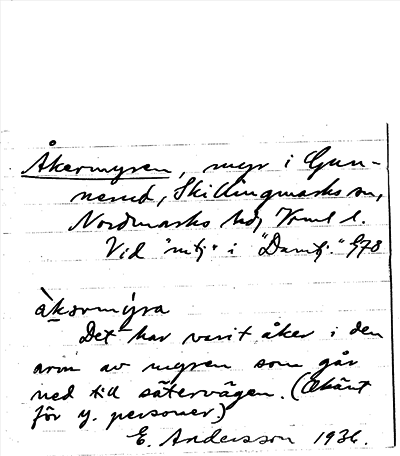 Åkermyren, myr i Gun-
nerud, Skillingmarks sn,
Nordmarks hd, Vrml l.
Vid "mtj" i "Damtj." G78
àkərmýra
Det har varit åker i den
arm av myren som går
ned till sätervägen. (Okänt
för y. personer)
E. Andersson 1936.